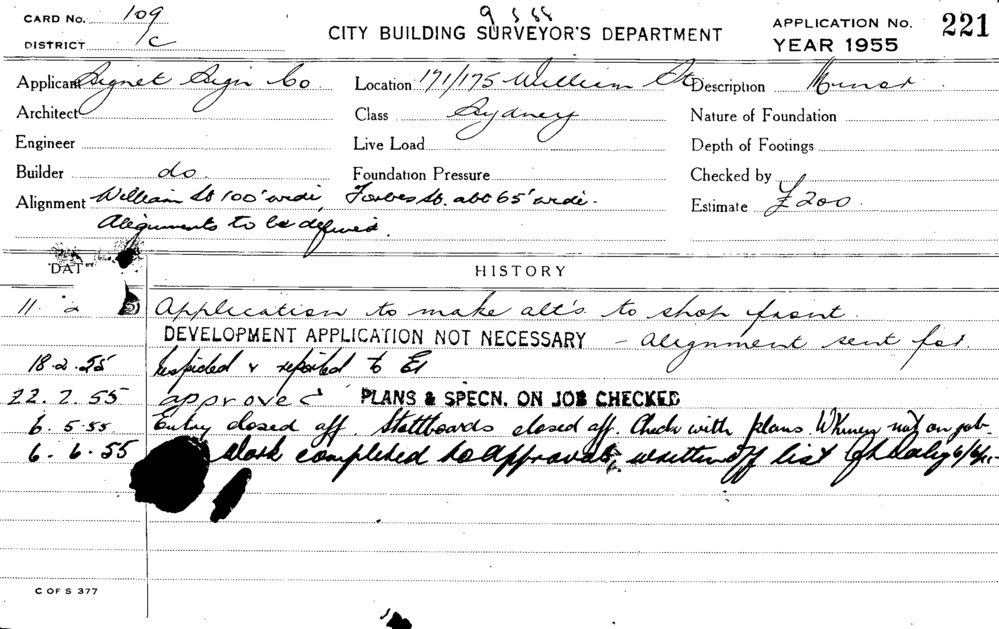 CARD NO. 109
DISTRICT /C
CITY BUILDING SURVEYOR'S DEPARTMENT
APPLICATION NO. 221
YEAR 1955
Applicant Signet Sign Co Location 171/175 William St Description Minor
Architect Class Sydney Nature of Foundation
Engineer Live Load Depth of Footings
Builder do. Foundation Pressure Checked by
Alignment William St 100' wide, Forbes St. abt 65' wide. Estimate £200
Alignments to be defined.
HISTORY
11. 2 Application to make alt's. to shop front.
DEVELOPMENT APPLICATION NOT NECESSARY - Alignment sent for.
18.2.55 Inspected & reported to
22.2.55 approved PLANS & SPECN. ON JOB CHECKED
6.5.55 Entry closed off Stallboards closed off. Check with plans. not on job
6.6.55 Work completed to approval, written off list 6/6/55
C OF S 377